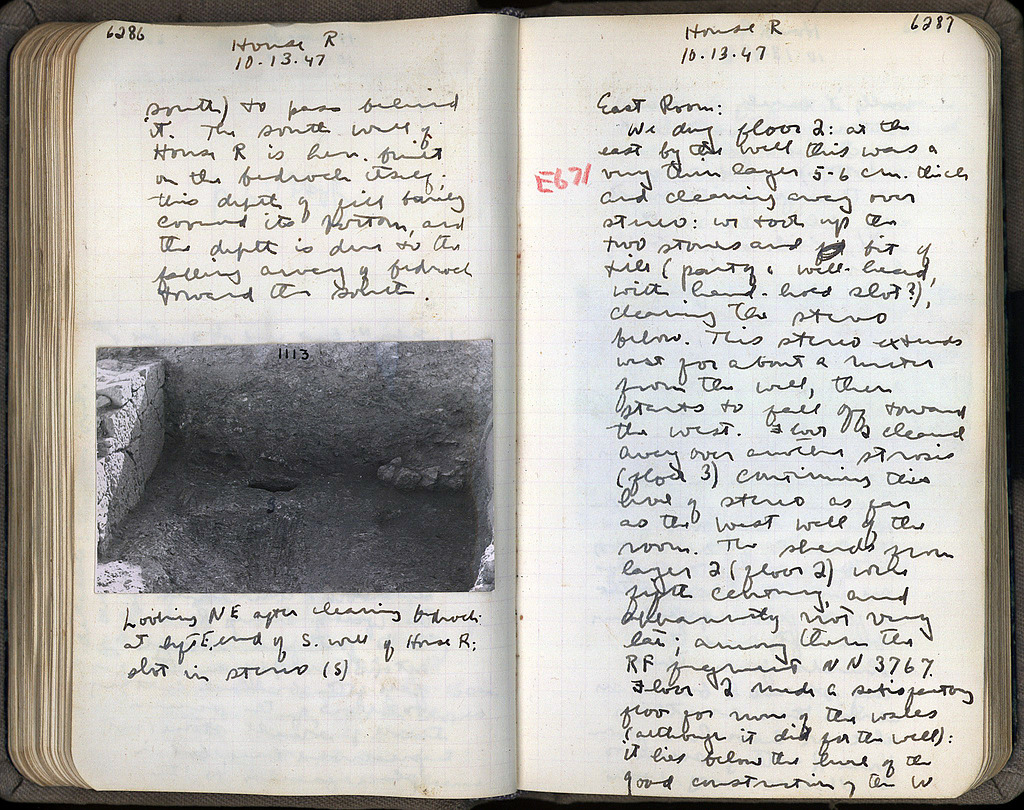 6286
House R
10.13.47
south) to pass behind
it. The south wall of
House R is here built
on the bedrock itself;
this depth of fill barely
covered its bottom, and
the depth is due to the
falling away of bedrock
toward the south.
1113
Looking NE after clearing bedrock:
at left E. end of S. wall of House R;
slot in stereo (S)
6287
House R
10.13.47
East Room:
We dug floor 2: at the
east by the well this was a
E671
very thin layer 5-6 cm. thick
and cleaning away over
stereo: we took up the
two stones and bit of
tile (part of a well-head,
with hand-hold slot?),
clearing the stereo
below. This stereo extends
west for about a meter
from the well, then
starts to fall off toward
the west. Floor 2 cleaned
away over another strosis
(floor 3) continuing this
level of stereo as far
as the west wall of the
room. The sherds from
layer 2 (floor 2) were
fifth century, and
apparently not very
late; among them the
RF fragment NN 3767.
Floor 2 made a satisfactory
floor for none of the walls
(although it did for the well):
it lies below the level of the
good construction of the W